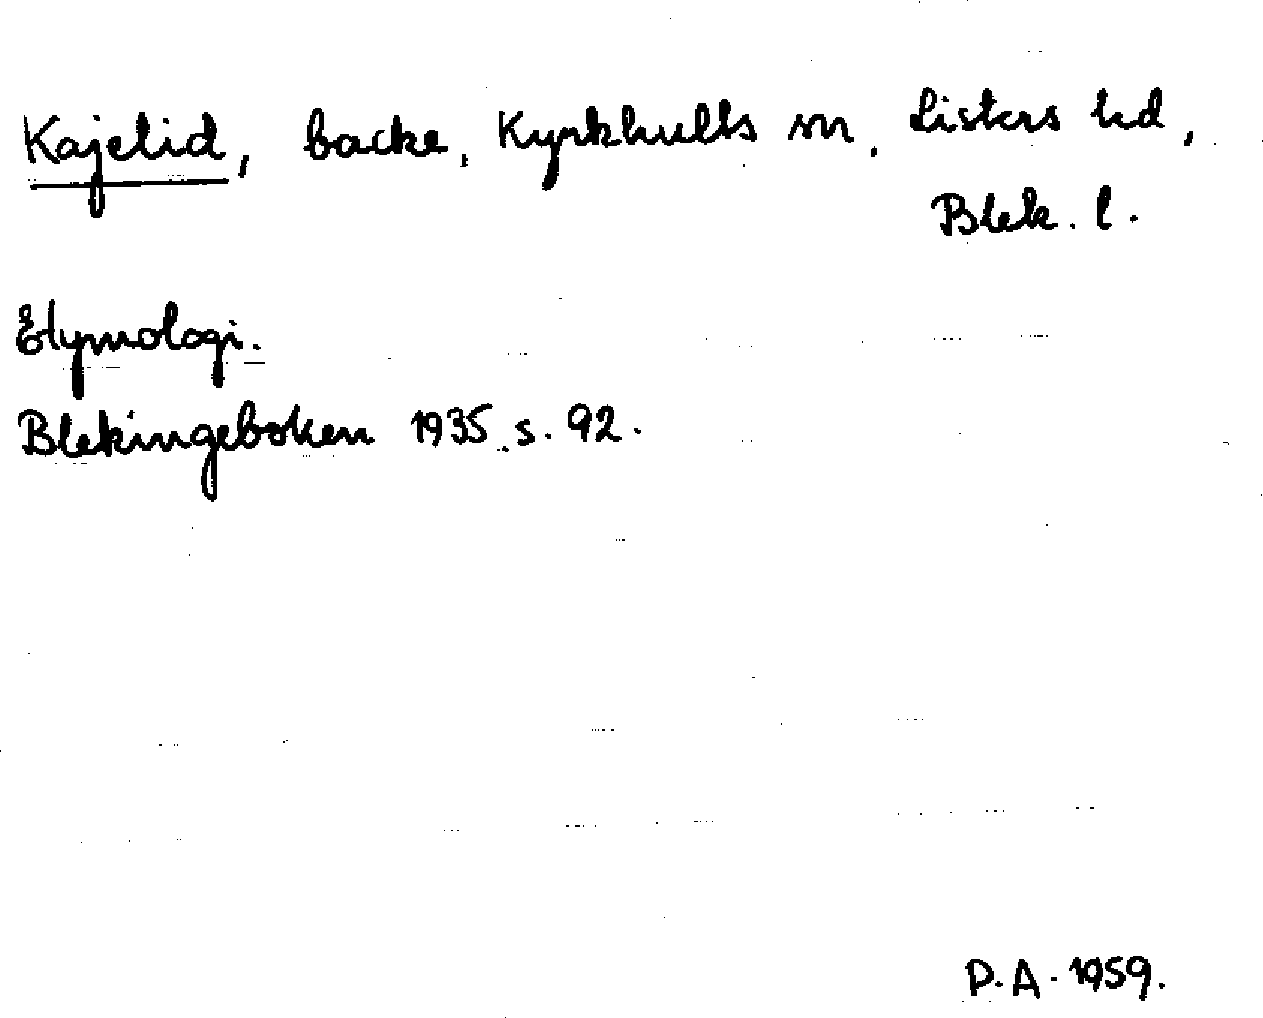 Kajelid, backe, Kyrkhults sn, Listers hd,
Blek. l.
Etymologi.
Blekingeboken 1935 s. 92.
P.A. 1959.